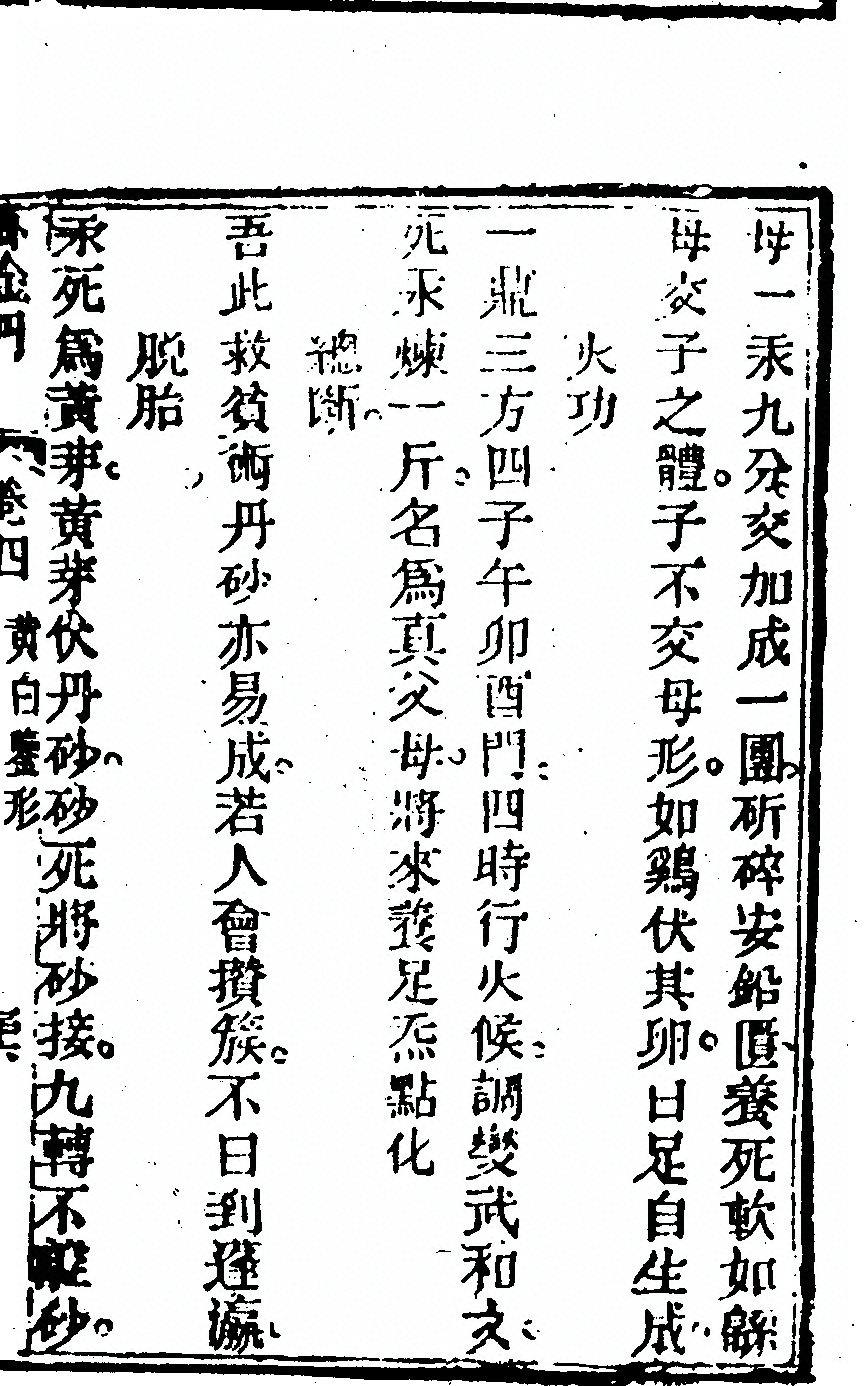 母一汞九分交加成一團斫碎安鉛匱養死軟如緜
母交子之體子不交母形如鷄伏其卵日足自生成
火功
一鼎三方四子午卯酉門四時行火候調燮武和文
死汞煉一斤名為真父母將來養足炁點化
總斷
吾此救貧術丹砂亦易成若人會攢簇不日到蓬瀛
脫胎
汞死為黃芽黃芽伏丹砂砂死將砂接九轉不離砂
卷四 黄白鑒形